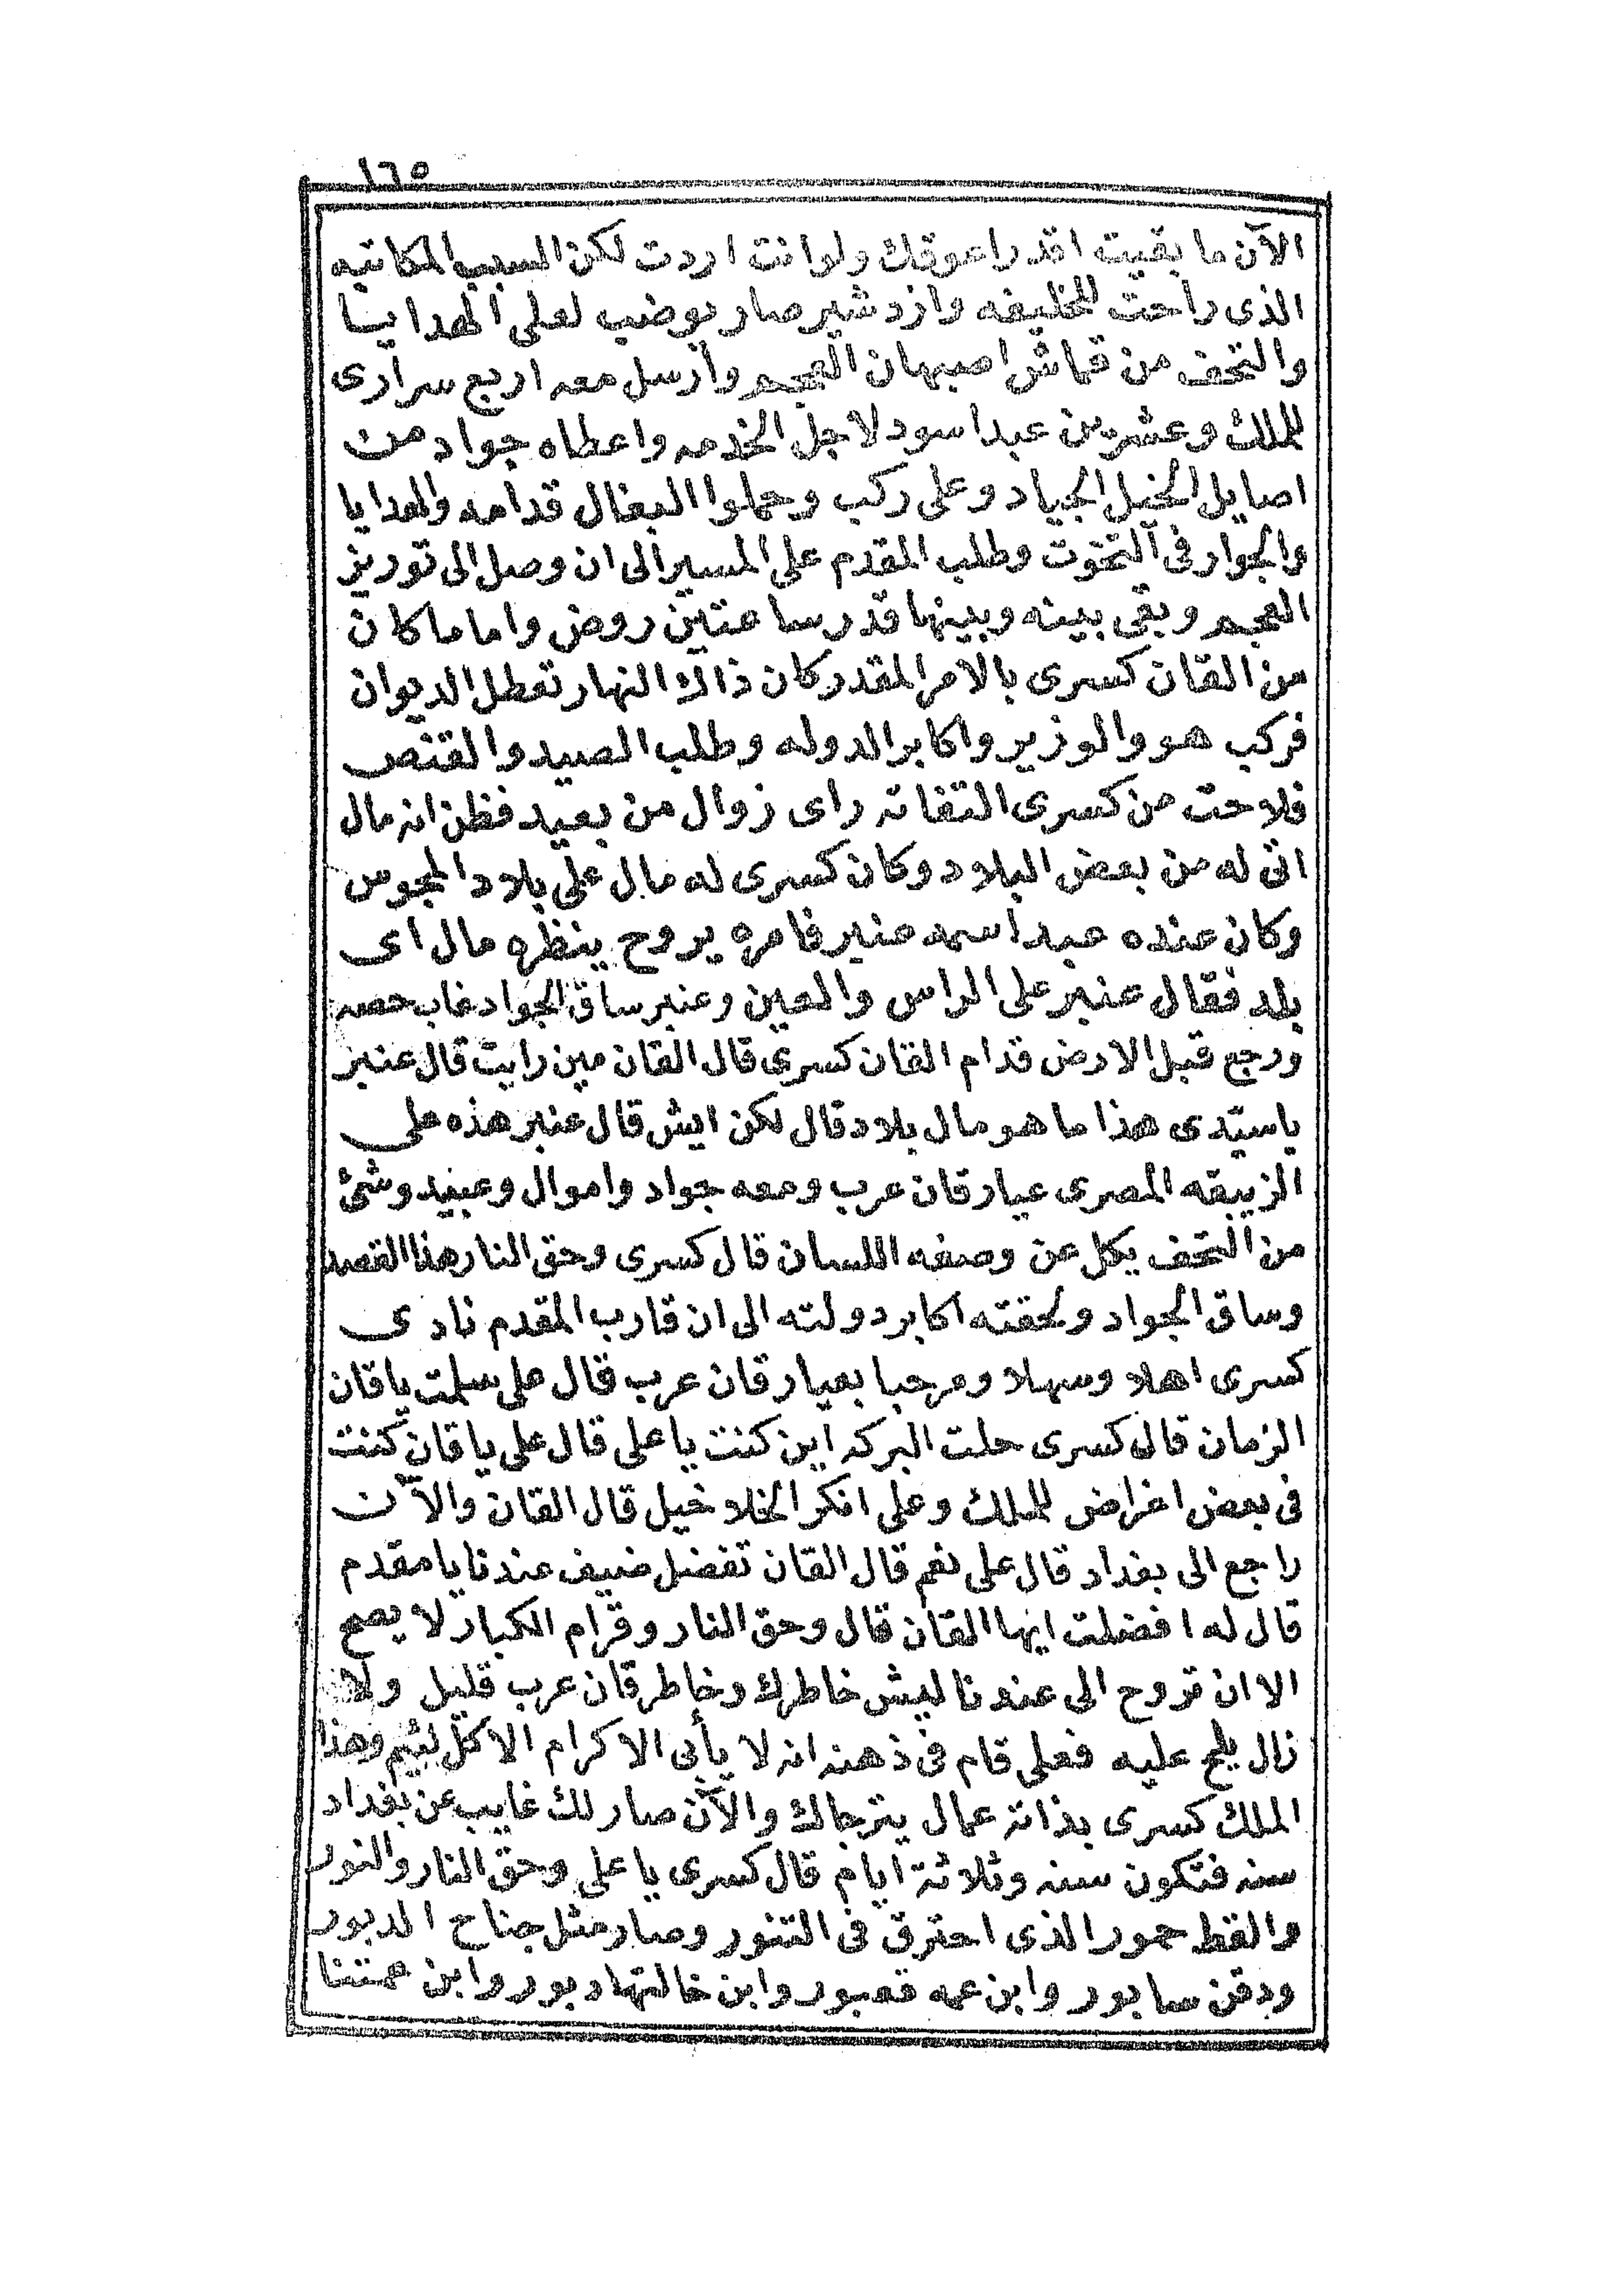 ١٦٥
الآن ما بقيت اقدر اعوقك ولو انت اردت لكن السبب المكاتبه
الذى راحت للخليفه وازدشير صار يوضب لعلى الهدايا
والتحف من قماش اصبهان العجم وارسل معه اربع سرارى
للملك وعشرين عبد اسود لاجل الخدمه واعطاه جواد من
اصايل الخيل الجياد وعلى ركب وحملوا البغال قدامه والهدايا
والجوار فى التخوت وطلب المقدم على المسير الى ان وصل الى توريز
العجم وبقى بينه وبينها قدر ساعتين روض واما ما كان
من القان كسرى بالامر المقدر كان ذالك النهار تعطل الديوان
فركب هو والوزير واكابر الدوله وطلب الصيد والقنص
فلاحت من كسرى التفاته راى زوال من بعيد فظن انه مال
اتى له من بعض البلاد وكان كسرى له مال على بلاد المجوس
وكان عنده عبد اسمه عنبر فامره يروح ينظره مال اى
بلد فقال عنبر على الراس والعين وعنبر ساق الجواد غاب حصه
ورجع قبل الارض قدام القان كسرى قال القان مين رايت قال عنبر
ياسيّدى هذا ما هو مال بلاد قال لكن ايش قال عنبر هذه على
الزيبقه المصرى عيار قان عرب ومعه جواد واموال وعبيد وشئ
من التحف يكل عن وصفه اللسان قال كسرى وحق النار هذا القصد
وساق الجواد ولحقته اكابر دولته الى ان قارب المقدم نادى
كسرى اهلا وسهلا ومرحبا بعيار قان عرب قال على سلمت ياقان
الزمان قال كسرى حلت البركه اين كنت يا على قال على ياقان كنت
فى بعض اغراض للملك وعلى انكر الخلاخيل قال القان والآن
راجع الى بغداد قال على نعم قال القان تفضل ضيف عندنا يا مقدم
قال له افضلت ايها القان قال وحق النار وقرام الكبار لا يصح
الا ان تروح الى عندنا ليش خاطرك وخاطر قان عرب قليل ولا
زال يلح عليه فعلى قام فى ذهنه انه لا يأبى الاكرام الا كل لئيم وهذا
الملك كسرى بذاته عمال يترجاك والآن صار لك غايب عن بغداد
سنه فتكون سنه وثلاثة ايام قال كسرى يا على وحق النار والنور
والقط حمور الذى احترق فى التنور وصار مثل جناح الدبور
ودقن سابور وابن عمه قعبور وابن خالتها دبور وابن عمتنا